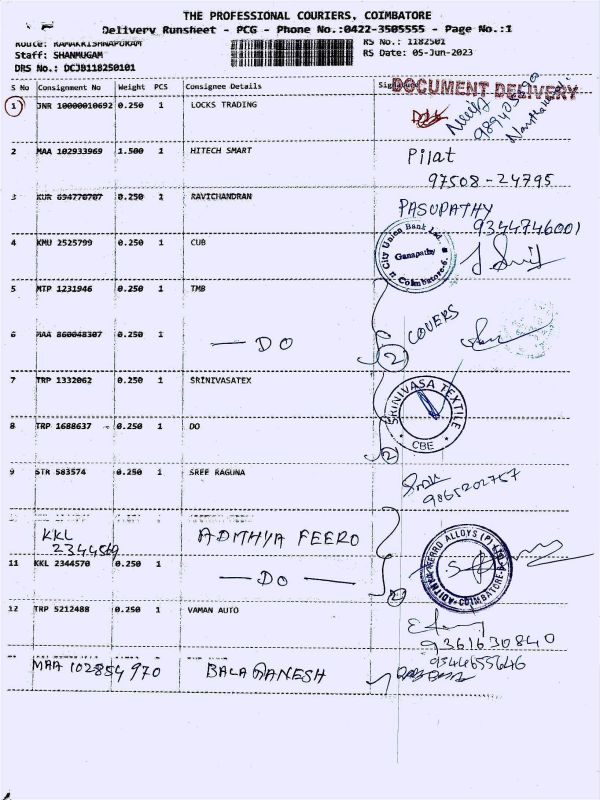 THE PROFESSIONAL COURIERS, COIMBATORE
Delivery Runsheet - PCG - Phone No.:0422-3505555 - Page No.:1
Route: RAMAKRISHNAPURAM
RS No.: 1182501
Staff: SHANMUGAM
RS Date: 05-Jun-2023
DRS No.: DCJB118250101
S No Consignment No Weight PCS Consignee Details
DOCUMENT DELIVERY
1 JNR 10000010692 0.250 1 LOCKS TRADING
2 MAA 102933969 1.500 1 HITECH SMART
Pilat
97508-24795
3 KUR 694770707 0.250 1 RAVICHANDRAN
PASUPATHY
9344746001
4 KMU 2525799 0.250 1 CUB
City Union Bank Ltd.
Ganapathy
Coimbatore-6.
5 MTP 1231946 0.250 1 TMB
6 MAA 860048307 0.250 1 — DO
2 COVERS
7 TRP 1332062 0.250 1 SRINIVASATEX
SRINIVASA TEXTILE
CBE
8 TRP 1688637 0.250 1 DO
2
9 STR 583574 0.250 1 SREE RAGUNA
9865202757
KKL
2344569
ADITHYA FEERO
11 KKL 2344570 0.250 1 — DO —
12 TRP 5212488 0.250 1 VAMAN AUTO
9361630840
MAA 102854970 BALA GANESH
9344655646